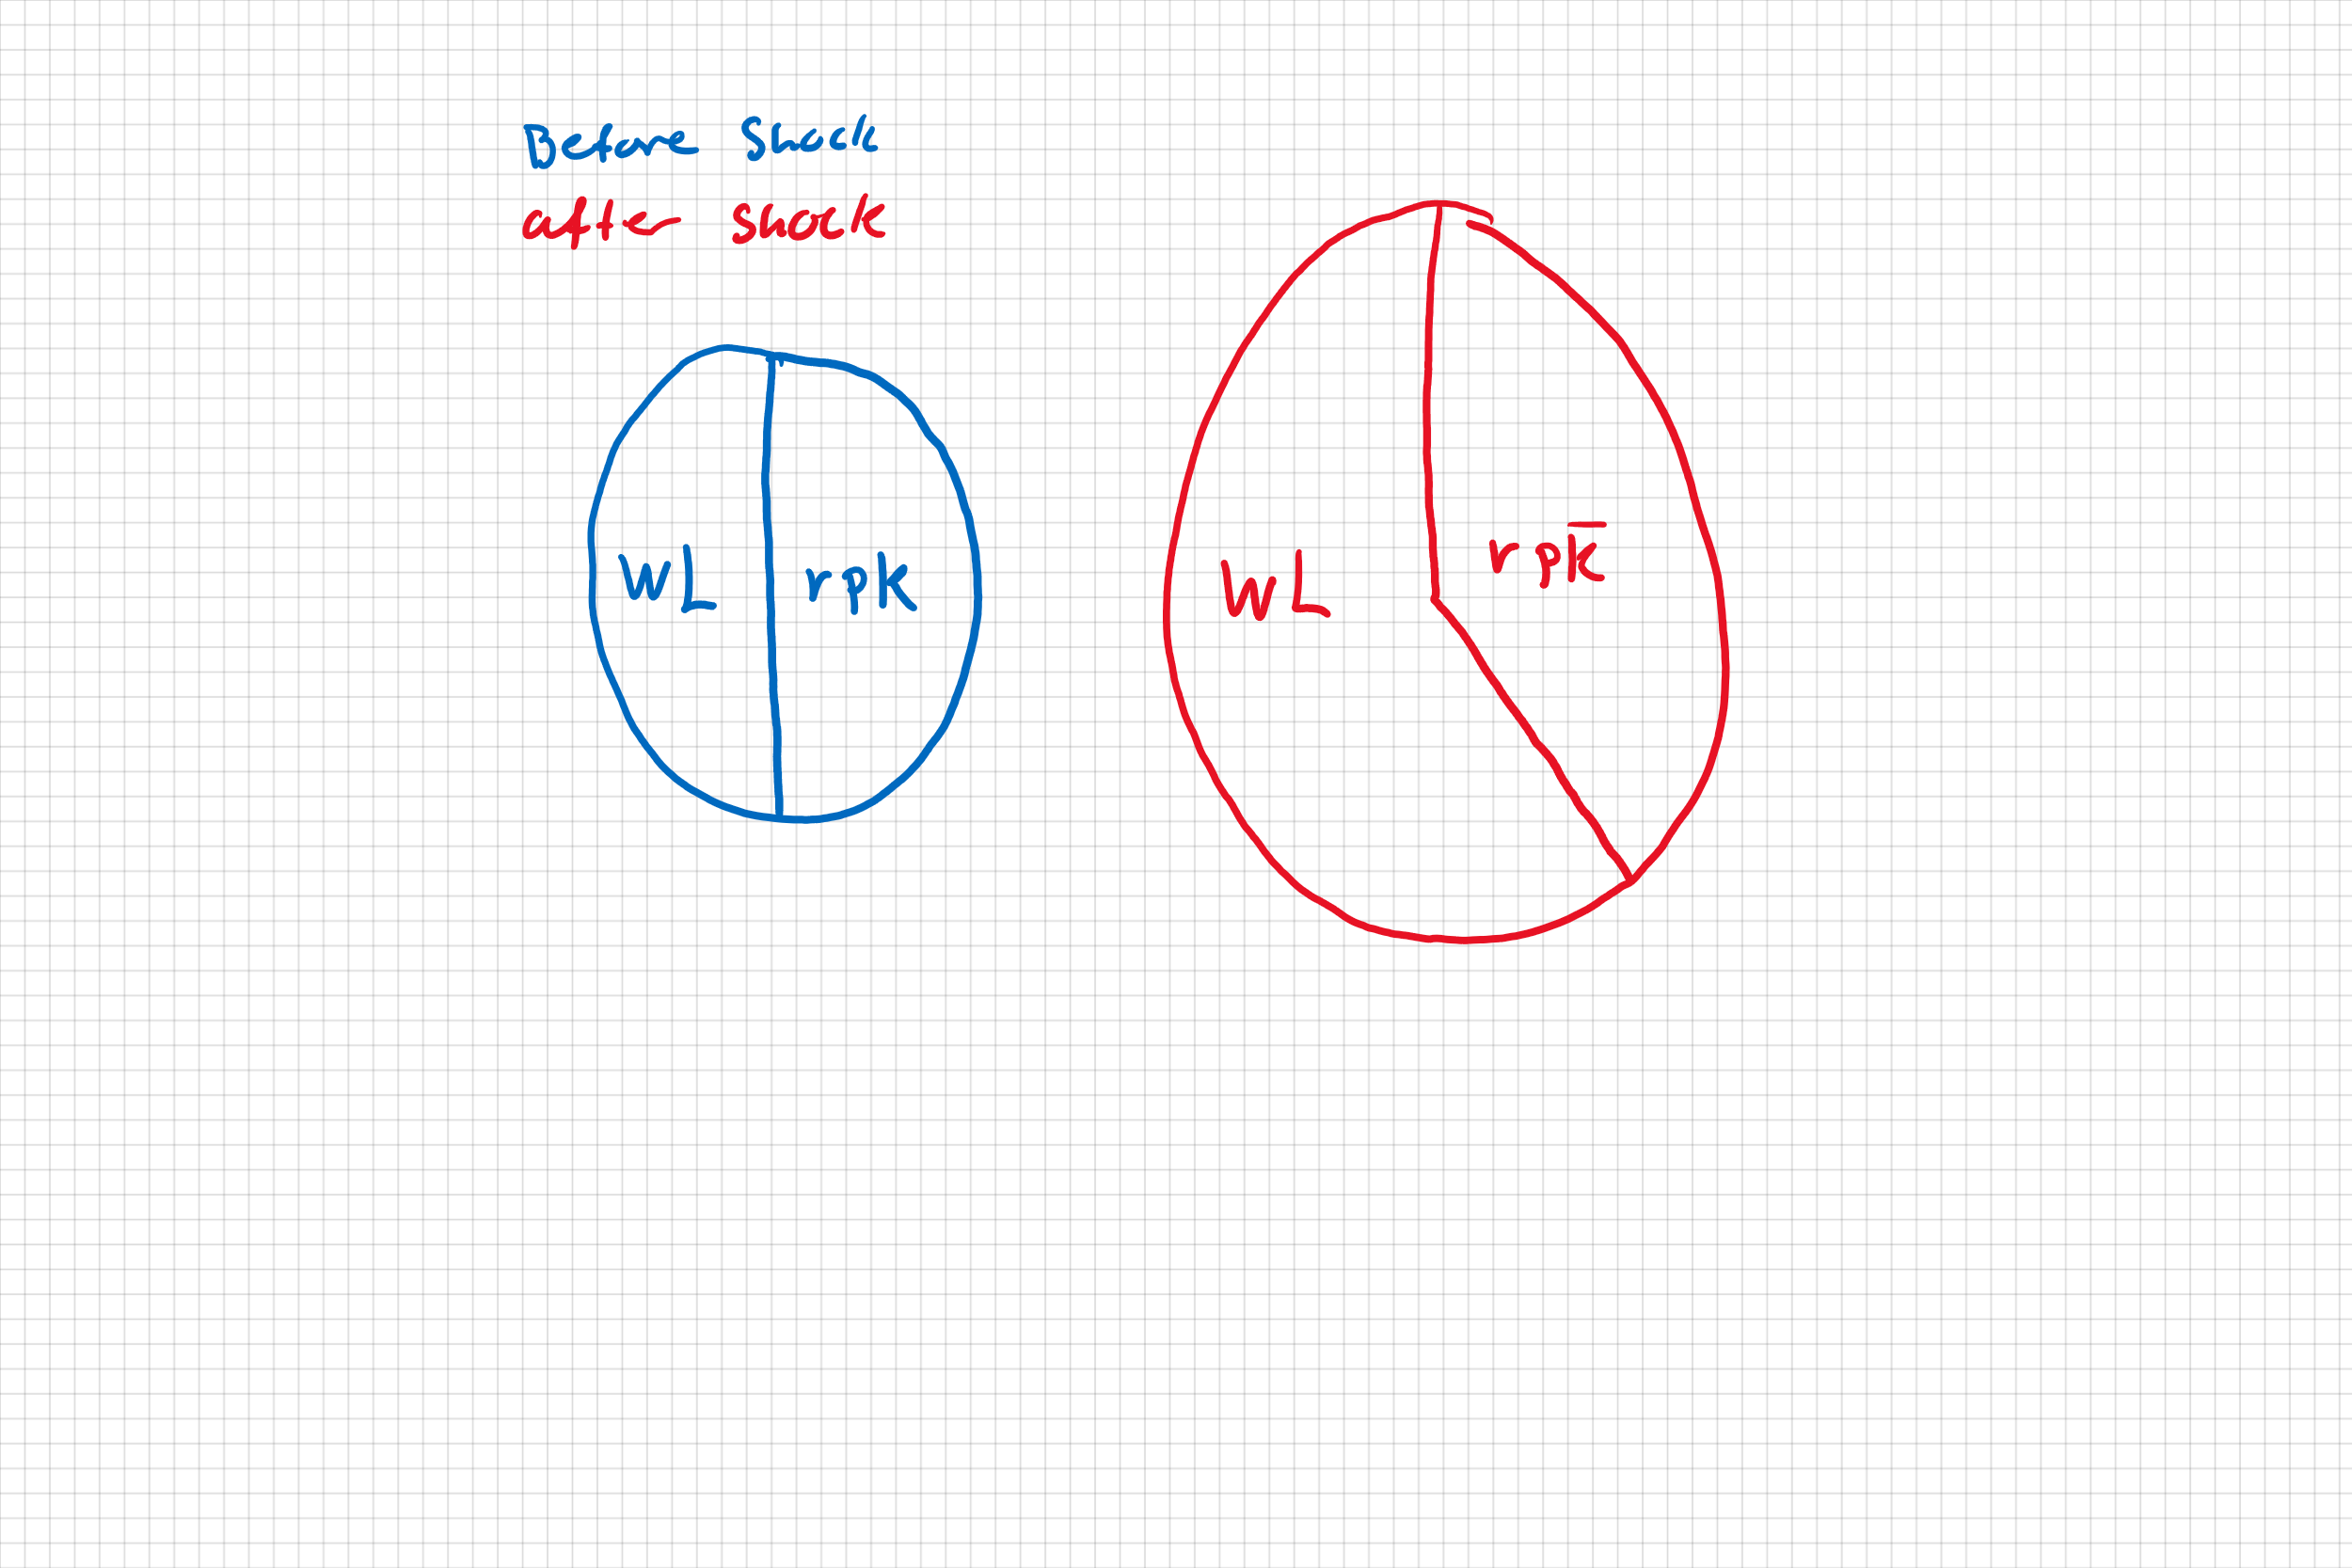 Before Shock
after shock
WL rpK
WL rpK̅